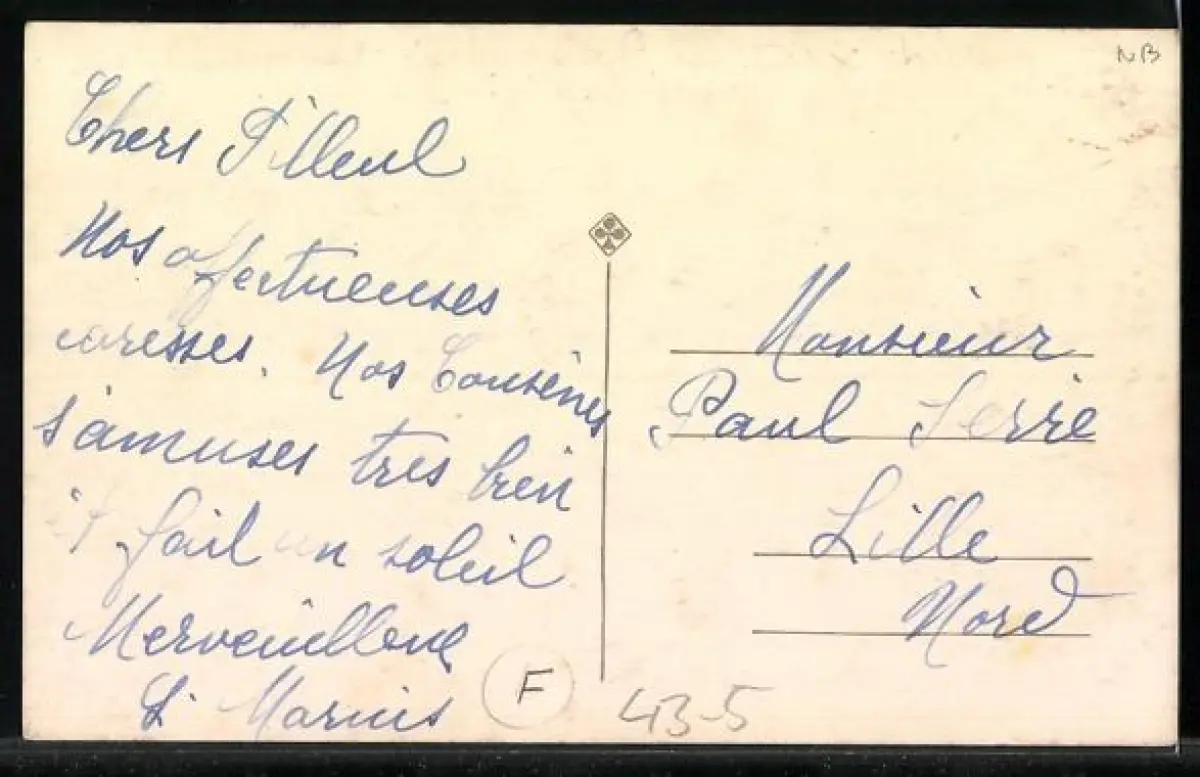 NB
Chers Filleul
Nos affectueuses
caresses. Nos Cousines
s'amuses tres bien
il fait un soleil
Merveilleux
L. Marius
F
43-5
Monsieur
Paul Serre
Lille
Nord